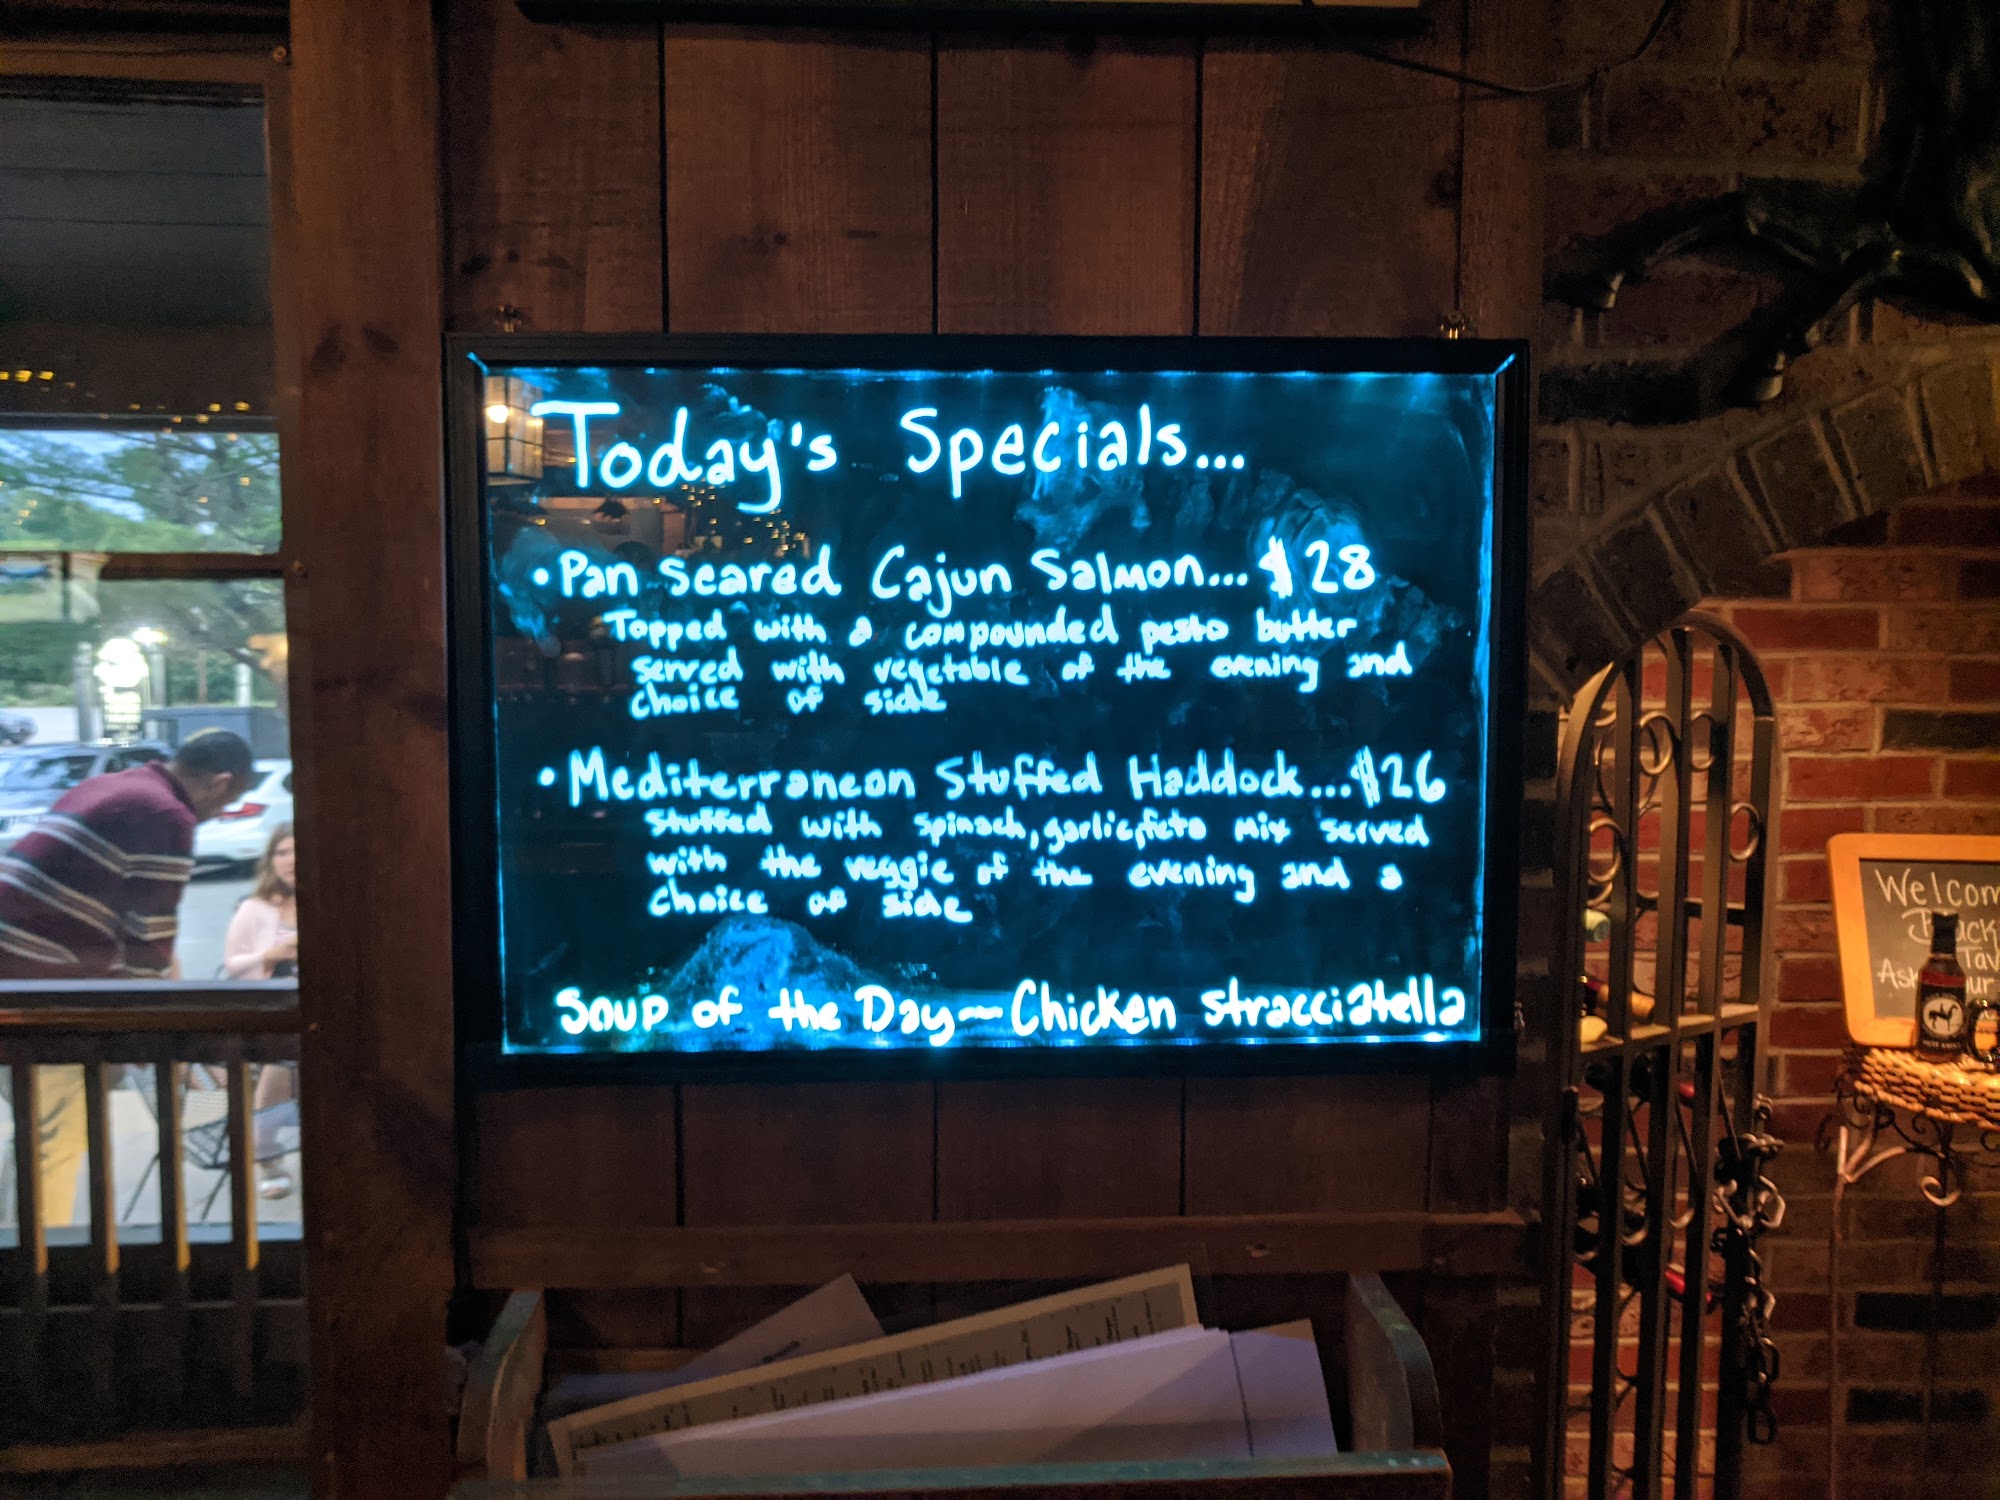 Today's Specials...
• Pan seared Cajun Salmon... $28
Topped with a compounded pesto butter
served with vegetable of the evening and
choice of side
• Mediterranean Stuffed Haddock...$26
stuffed with spinach, garlic, feta mix served
with the veggie of the evening and a
choice of side
Soup of the Day—Chicken stracciatella
Welcom
Tav
Ask